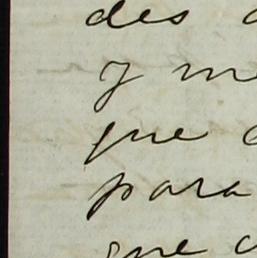 des
y me
que
para
que